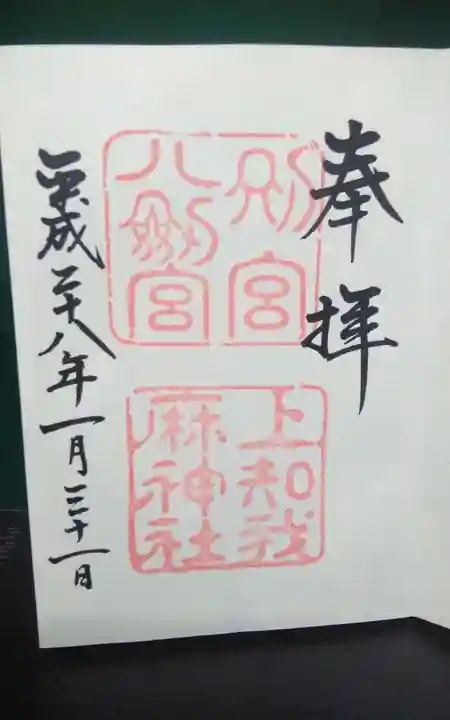 奉拝
別宮
八剱宮
上知我
麻神社
平成二十八年一月三十一日